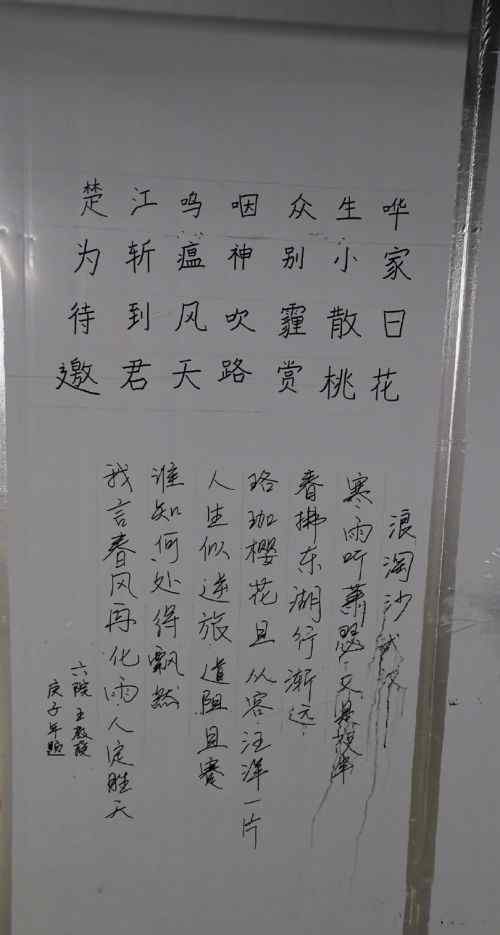 楚江呜咽众生哗
为斩瘟神别小家
待到风吹霾散日
邀君天路赏桃花
浪淘沙 武汉
寒雨听萧瑟
春拂东湖行渐远
珞珈樱花且从容汪洋一片
人生似逆旅道阻且赛
谁知何处得飘然
我言春风再化雨人定胜天
六院王教授
庚子年题